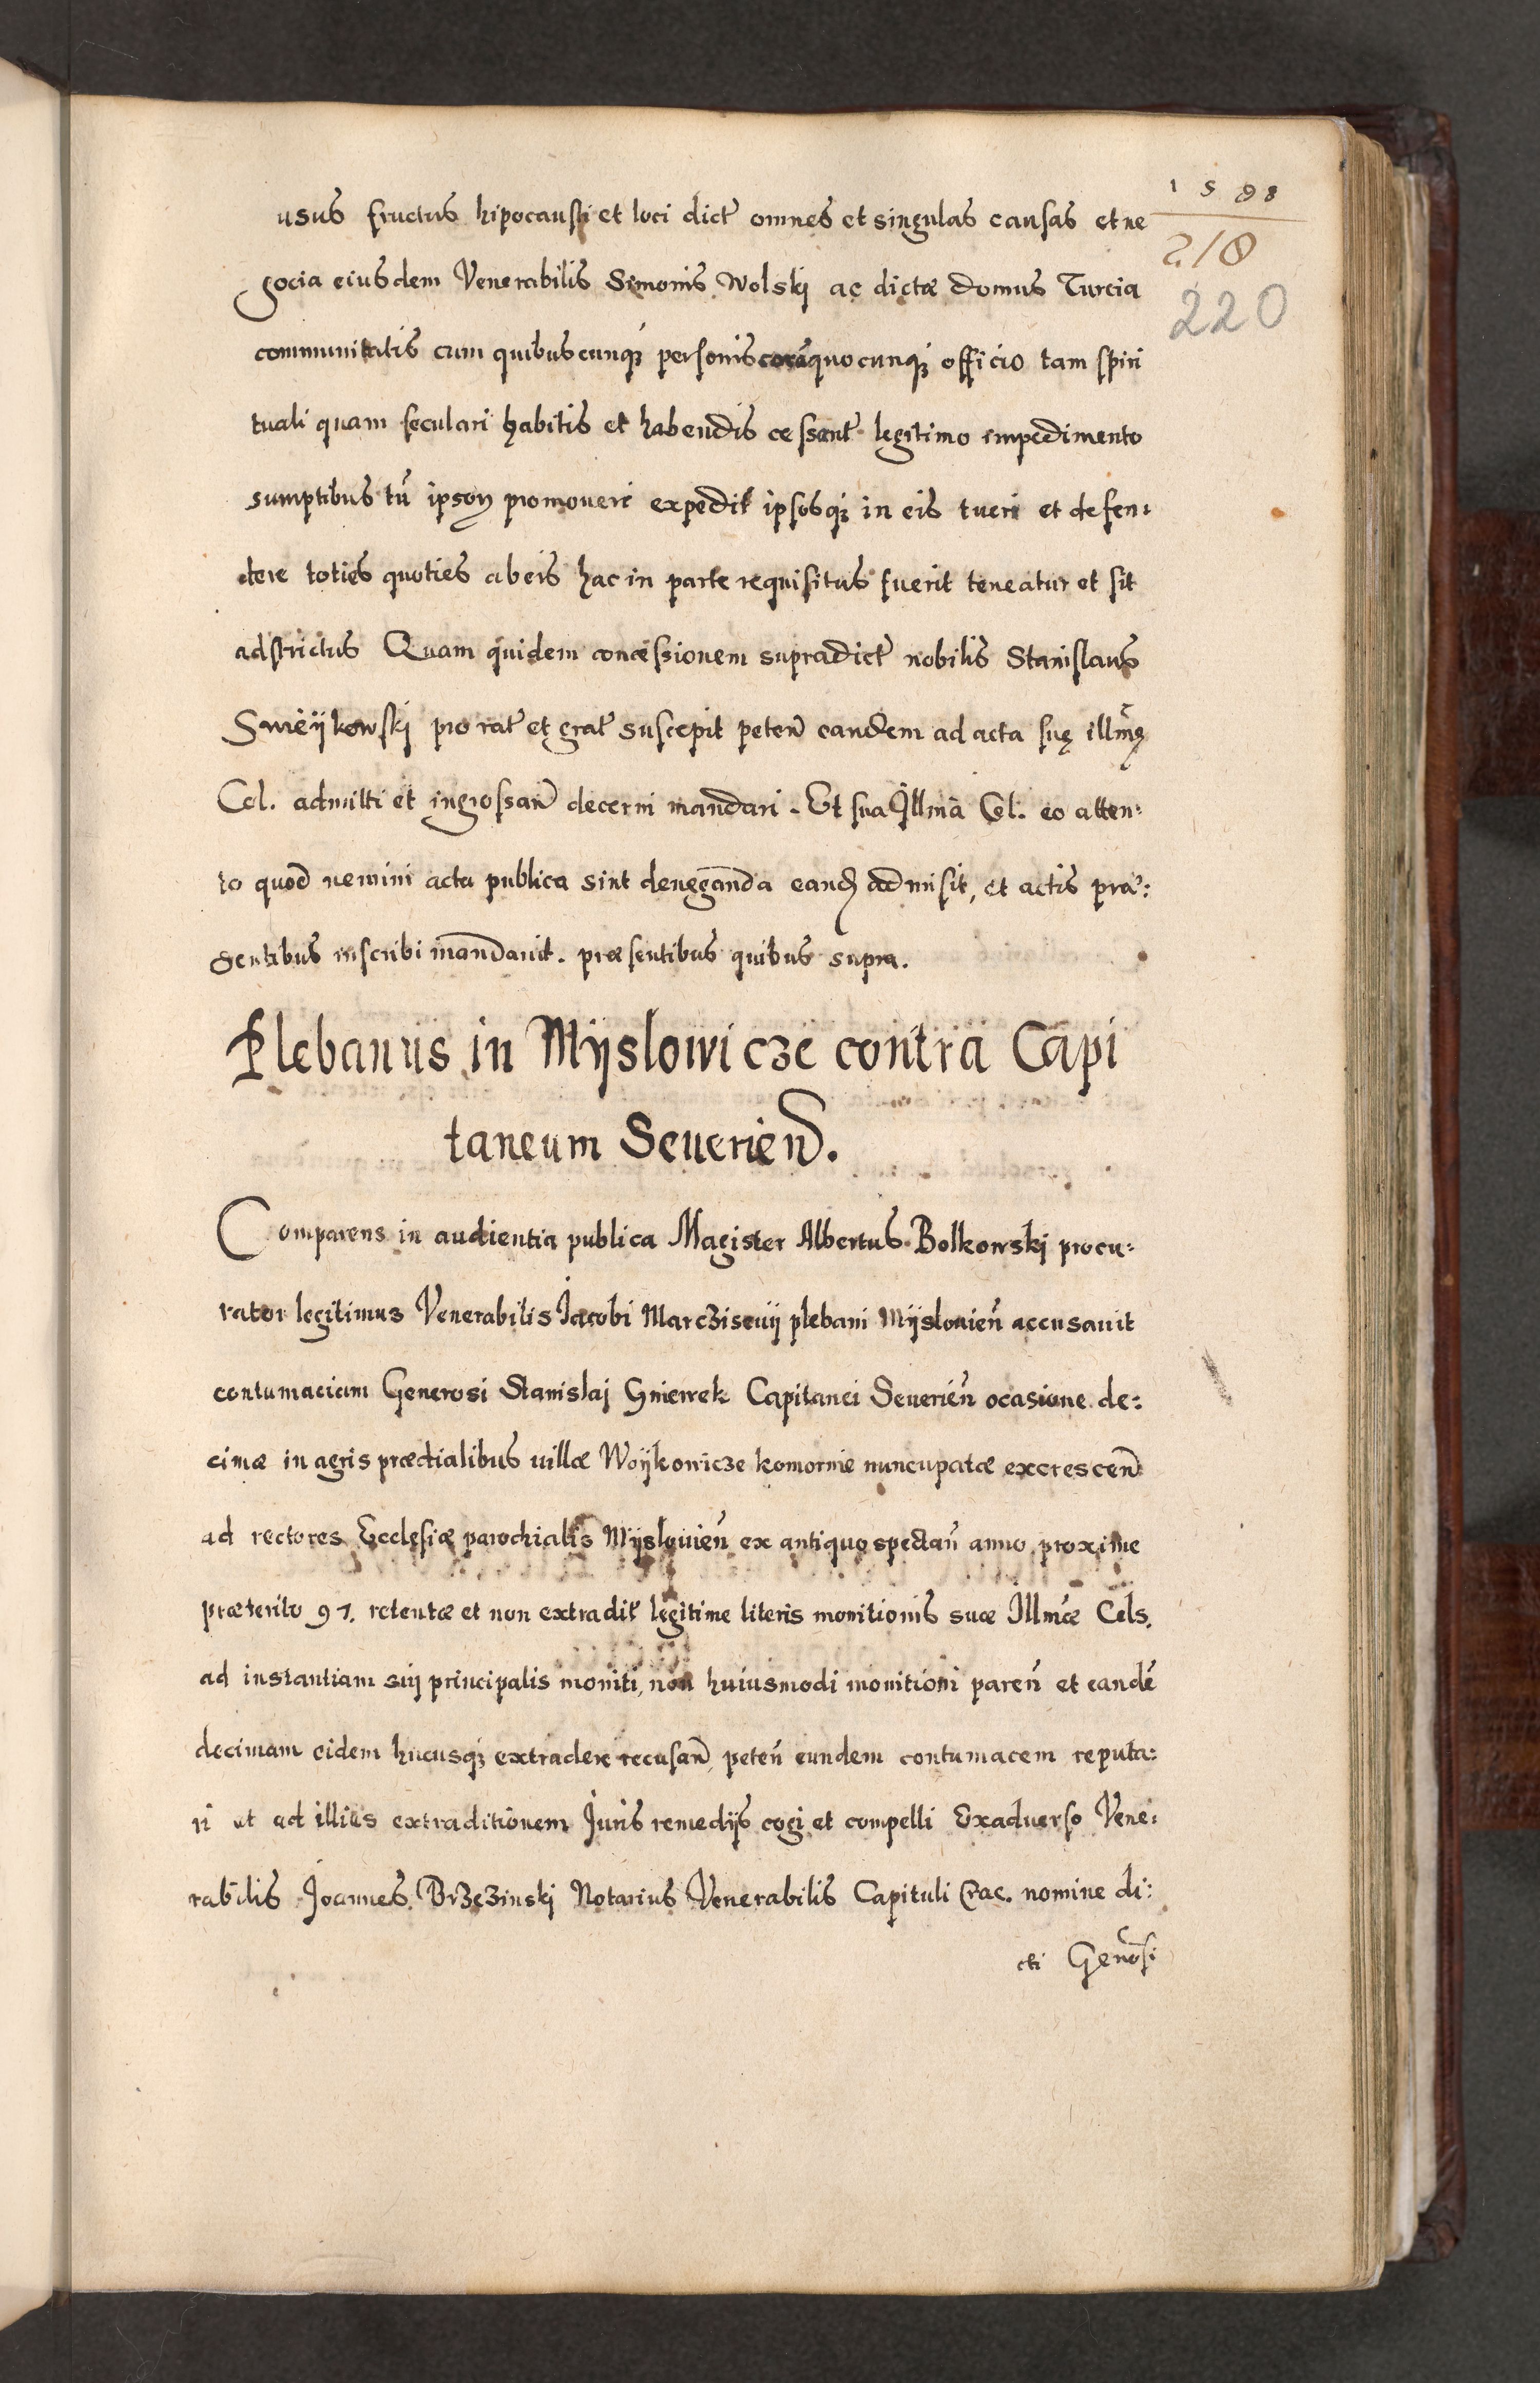 1598
218
220
usus fructus hipocausti et loci dict̃ omnes et singulas causas et ne
gocia eiusdem Venerabilis Simonis Wolski ac dictæ domus Turcia
communitatis cum quibuscunq́ꝫ personis corã quocunq́ꝫ officio tam spiri
tuali quam seculari habitis et habendis cessant̃ legitimo impedimento
sumptibus tñ ipsoꝝ promoueri expedit̃ ipsosq́ꝫ in eis tueri et defen:
dere toties quoties ab eis hac in parte requisitus fuerit teneatur et sit
adstrictus Quam quidem concessionem supradict̃ nobilis Stanislaus
Smëykowski pro rat̃ et grat̃ suscepit peteñ eandem ad acta suę illm̃ę
Cel. admitti et ingrossañ decerni mandari. Et sua Illmã Cel. eo atten:
to quod nemini acta publica sint deneganda eand̃ admisit, et actis præ:
sentibus inscribi mandauit. præsentibus quibus supra.
Plebanus in Mÿslowicze contra Capi
taneum Seuerieñ.
Comparens in audientia publica Magister Albertus Bolkowski procu:
rator legitimus Venerabilis Jacobi Marcziseuij plebani Mÿslouieñ accusauit
contumaciam Generosi Stanislaj Gnierek Capitanei Seuerieñ ocasione de:
cimæ in agris prædialibus uillæ Woÿkowicze komornie nuncupatæ excresceñ
ad rectores Ecclesiæ parochialis Mÿslouieñ ex antiquo spectañ anno proxime
præterito 97. retentæ et non extradit̃ legitime literis monitionis suæ Illm̃æ Cels.
ad instantiam sui principalis moniti, non huiusmodi monitioni pareñ et eandẽ
decimam eidem hucusq́ꝫ extradere recusañ, peteñ eundem contumacem reputa:
ri et ad illius extraditionem Juris remedijs cogi et compelli Exaduerso Vene:
rabilis Joannes Brzezinski Notarius Venerabilis Capituli Crac. nomine di:
cti Geñosi